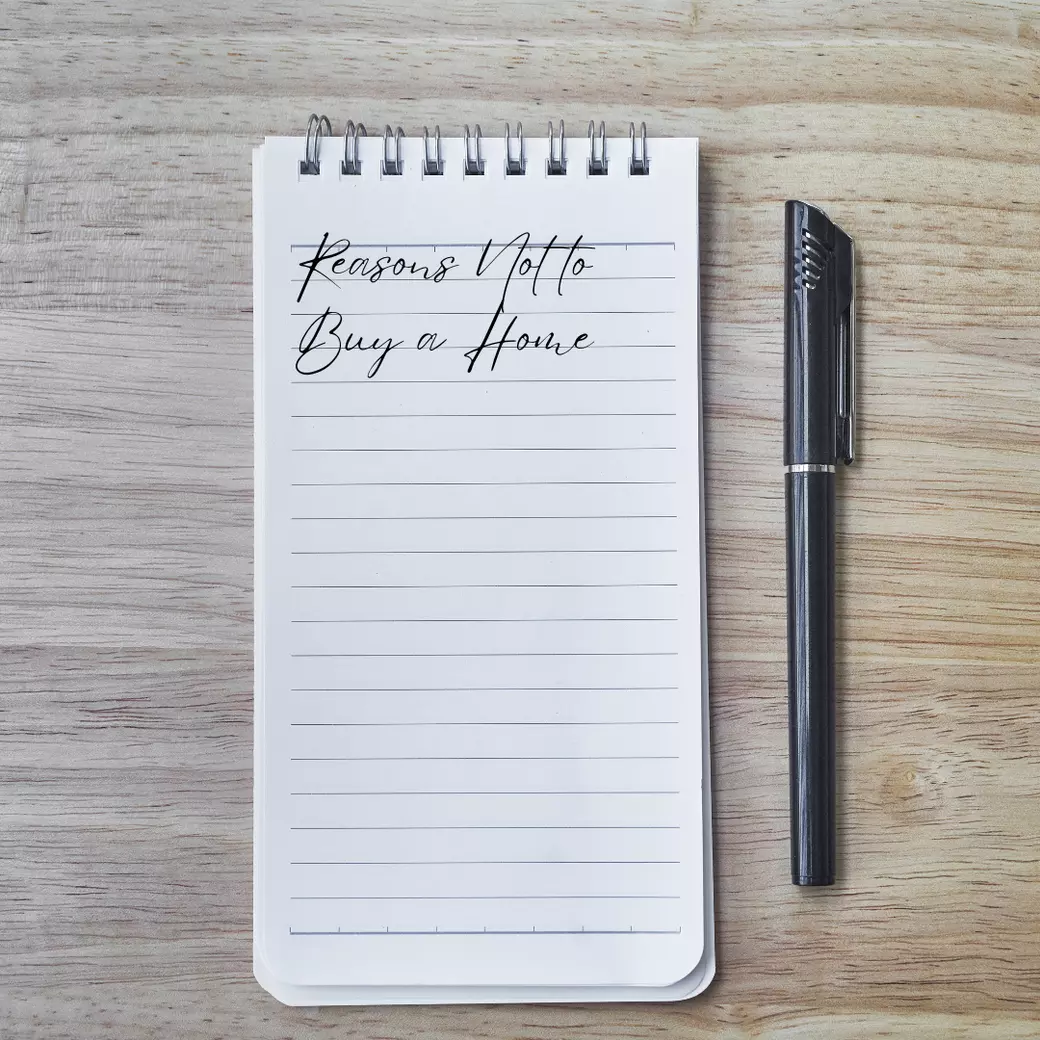 Reasons Not to
Buy a Home